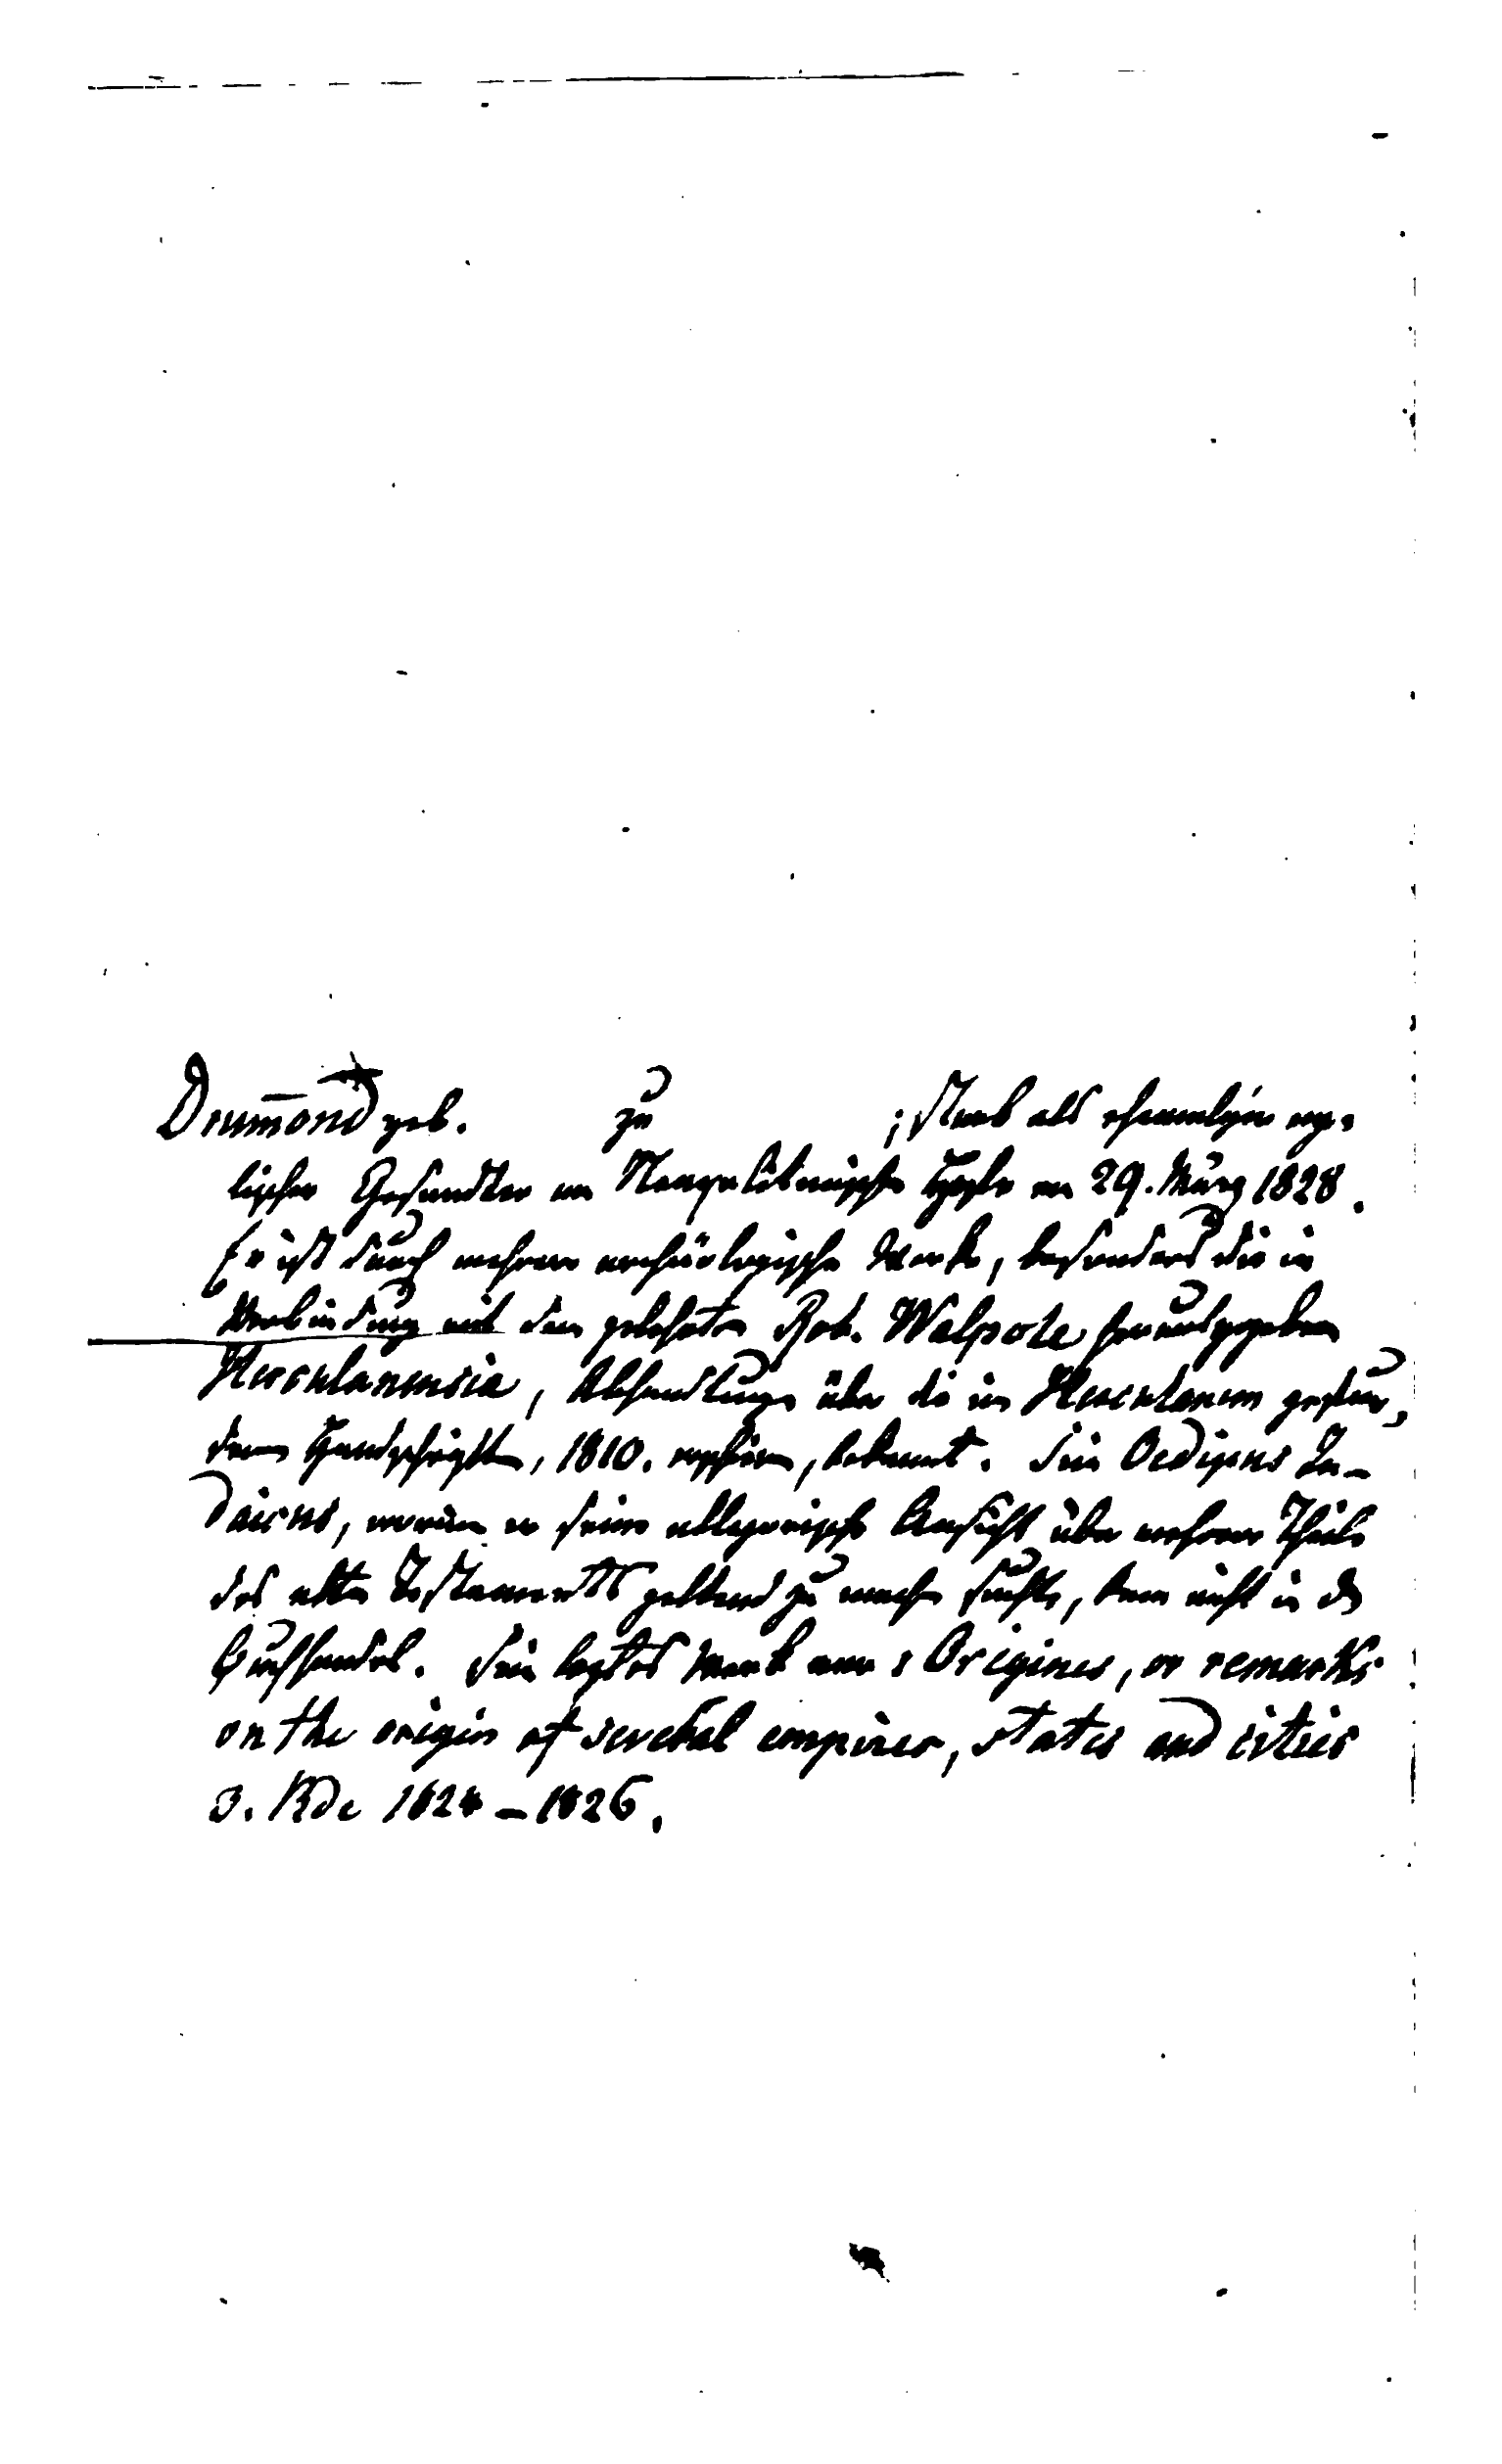 Drum̄ond geb. zu ; starb als ehemaliger eng-
lischer Gesandter am Neapolitanischen Hofe am 29. März 1828.
Er ist durch mehrere archäologische Werke, besonders die in
Verbindung mit dem gelehrten Rob. Walpole herausgegebenen
Herculanensia, Abhandlungen über die in Herculanum gefun-
denen Handschriften, 1810. erschienen, bekannt. Sein Oedipus Ju-
daicus, worin er seine allegorische Ansicht über mehrere Theile
des alten Testaments geltend zu machen suchte, kam nicht in den
Buchhandel. Sein letztes Werk war: Origines, or remarks
on the origin of several empires, states and cities
3. Bde 1824 – 1826.